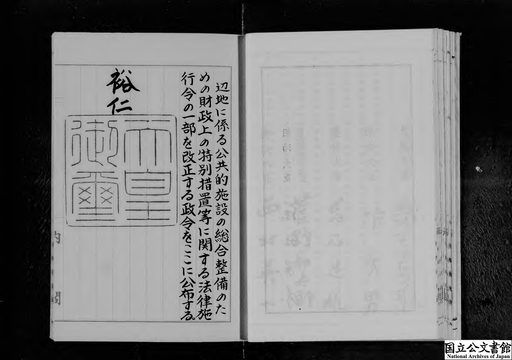 辺地に係る公共的施設の総合整備のた
めの財政上の特別措置等に関する法律施
行令の一部を改正する政令をここに公布する
裕仁
天皇
御璽
内閣
国立公文書館
National Archives of Japan